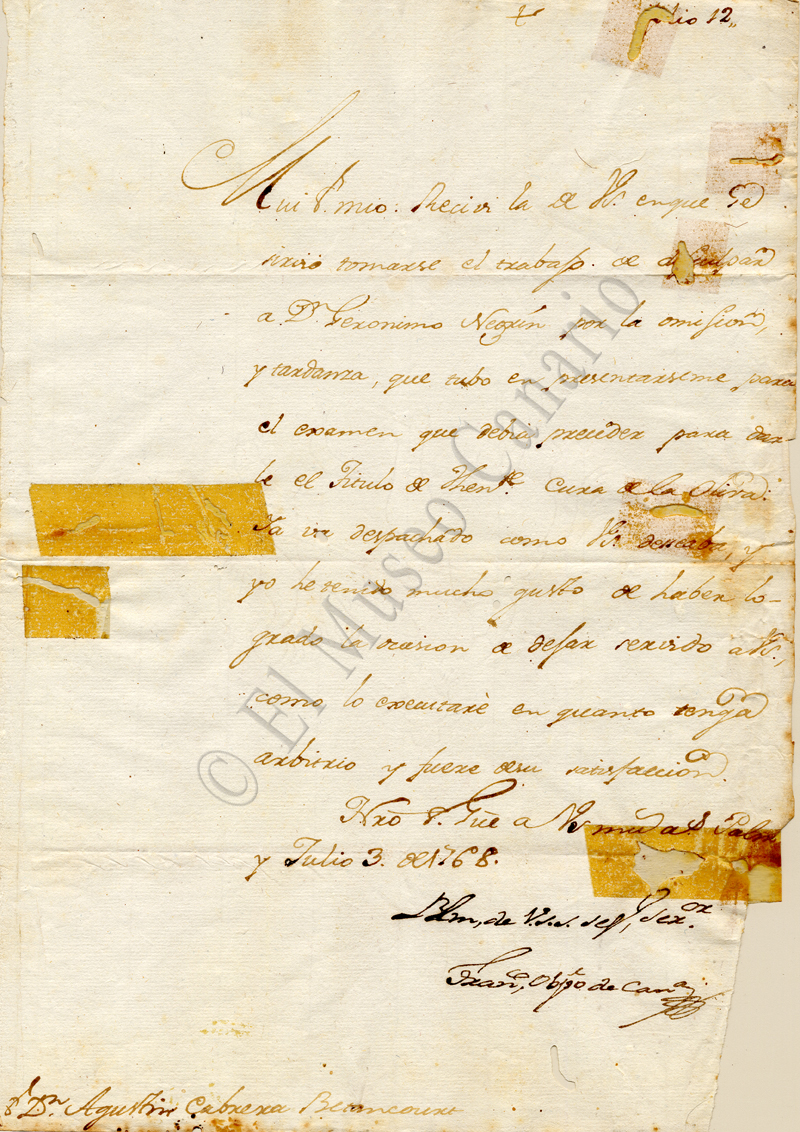 lio 12,,
Mui Sr. mio: Recivi la de VS. en que se
sirvió tomarse el trabajo de disculpar
a Dn. Geronimo Negrín por la omision,
y tardanza, que tubo en presentarseme para
el examen que debia preceder para dar-
le el Titulo de Thente. Cura de la Oliva.
Ya va despachado como VS. deseaba, y
yo he tenido mucho gusto de haber lo-
grado la ocasion de dejar servido a VS.,
como lo executarè en quanto tenga
arbitrio y fuere de su satisfaccion.
Nro. Sr. Gue. a VS mu. a.s Palm
y Julio 3. de 1768.
Blm, de V.s. s. seg, Ser.or
Franco, Obpo de Cana.
Sr. Dn. Agustin Cabrera Betancourt
© El Museo Canario